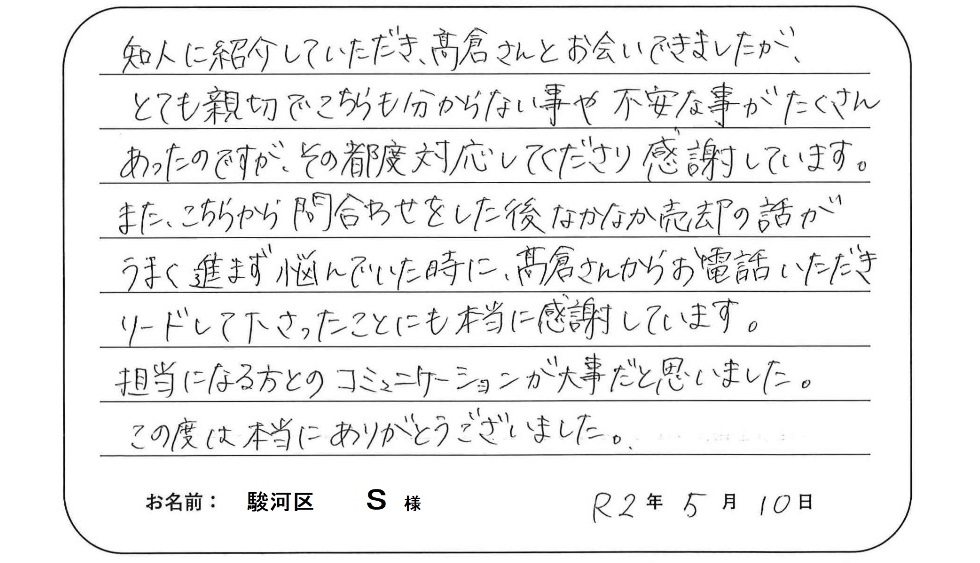 知人に紹介していただき、髙倉さんとお会いできましたが、
とても親切でこちらも分からない事や不安な事がたくさん
あったのですが、その都度対応してくださり感謝しています。
また、こちらから問合わせをした後なかなか売却の話が
うまく進まず悩んでいた時に、髙倉さんからお電話いただき
リードして下さったことにも本当に感謝しています。
担当になる方とのコミュニケーションが大事だと思いました。
この度は本当にありがとうございました。
お名前： 駿河区 S 様 R2年 5月 10日